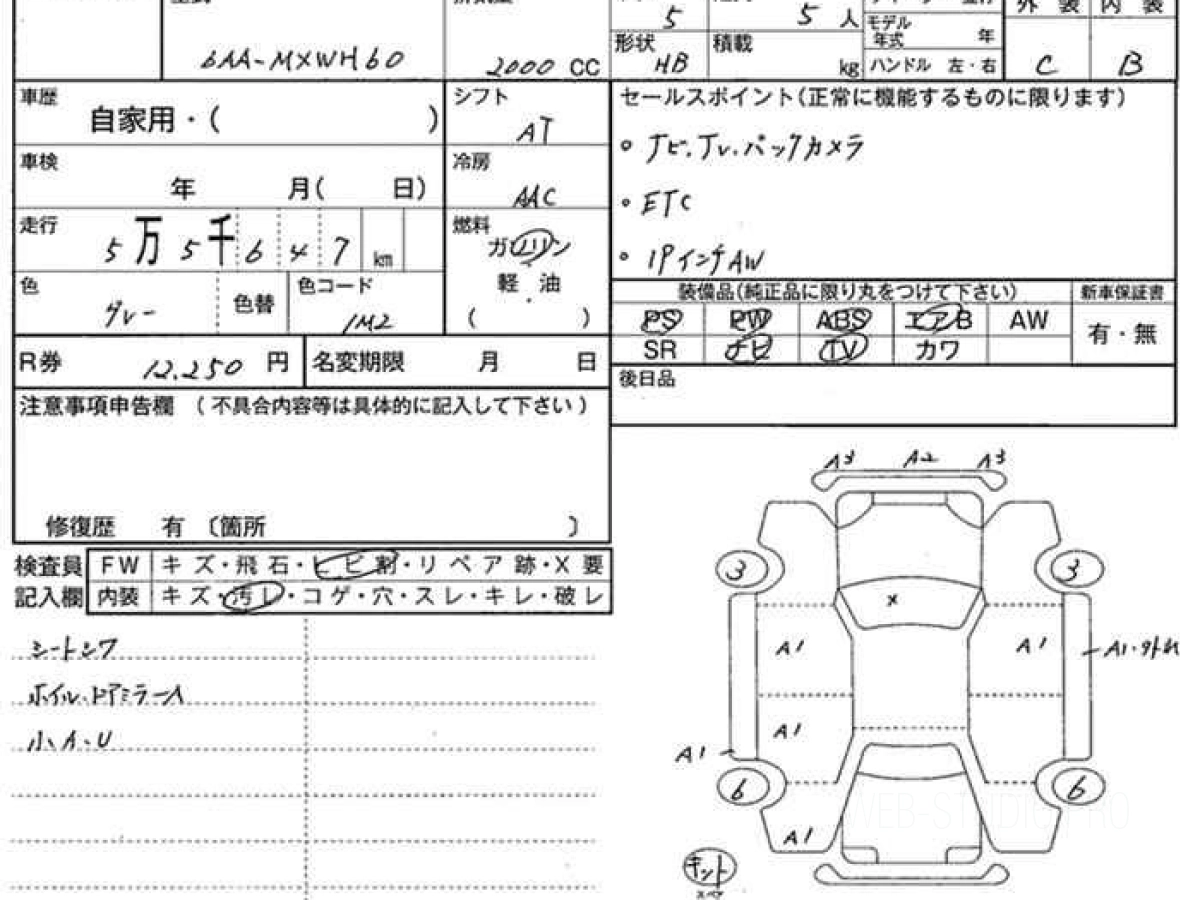 5
5 人
モデル
年式 年
外 装 内 装
6AA-MXWH60
2000 CC
形状
HB
積載
kg
ハンドル 左・右
C
B
車歴
自家用・( )
シフト
AT
セールスポイント(正常に機能するものに限ります)
車検
年 月( 日)
冷房
AAC
。ナビ.Tv.バックカメラ
。ETC
走行
5万5千647 km
燃料
ガソリン
軽・油
( )
。19インチAW
色
グレー
色替
色コード
1M2
装備品(純正品に限り丸をつけて下さい)
新車保証書
PS PW ABS エアB AW
有・無
SR ナビ TV カワ
R券 12.250 円
名変期限 月 日
後日品
注意事項申告欄 (不具合内容等は具体的に記入して下さい)
修復歴 有 〔箇所 〕
検査員
記入欄
FW キズ・飛石・ヒビ割・リペア跡・X要
内装 キズ・汚レ・コゲ・穴・スレ・キレ・破レ
シートシワ
ホイル.ドアミラーA
小、A、U
A3 A2 A3
3 3
×
A1 A1 A1.外れ
A1
A1
6 6
A1
WEB-STUDIO.PRO
キット